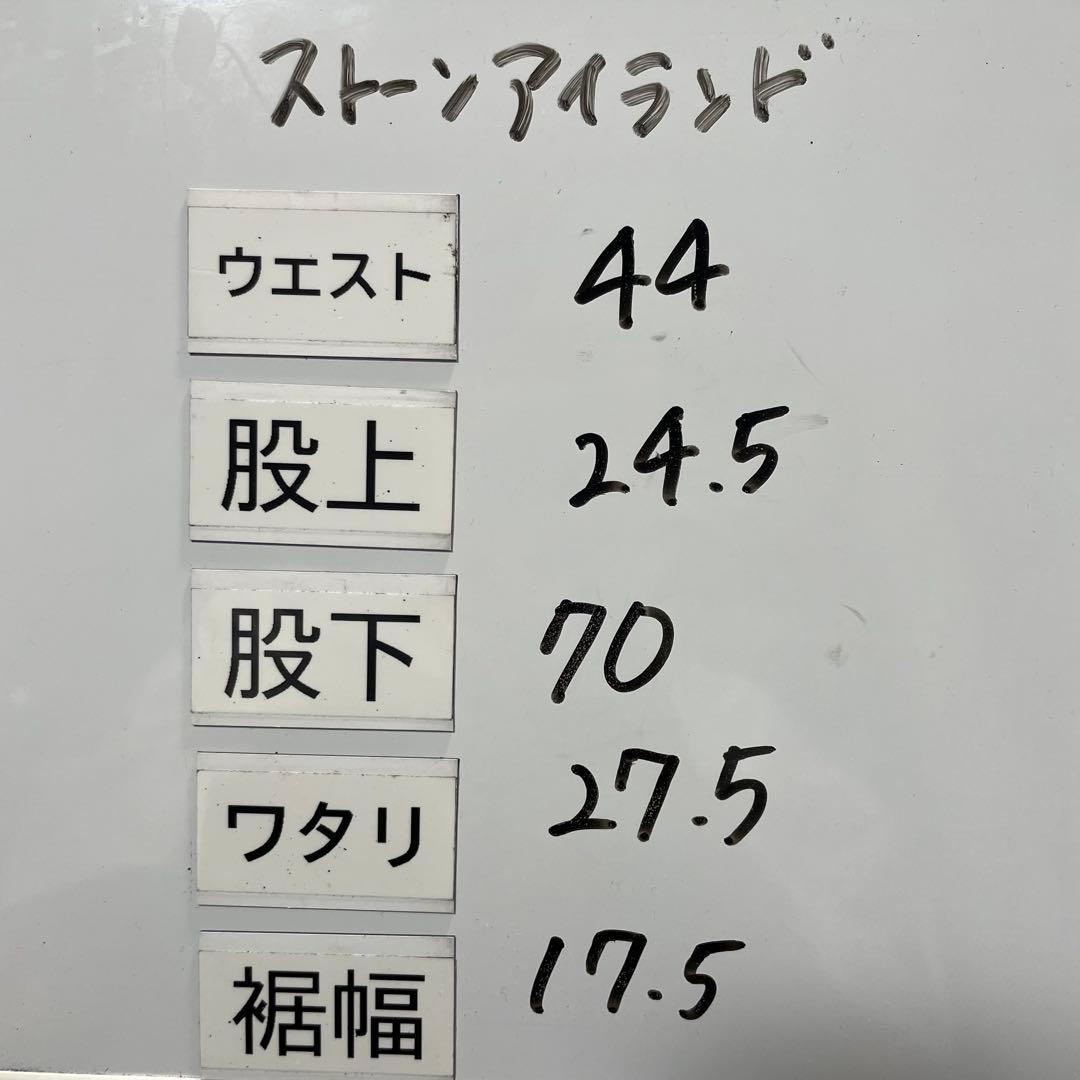 ストーンアイランド
ウエスト 44
股上 24.5
股下 70
ワタリ 27.5
裾幅 17.5